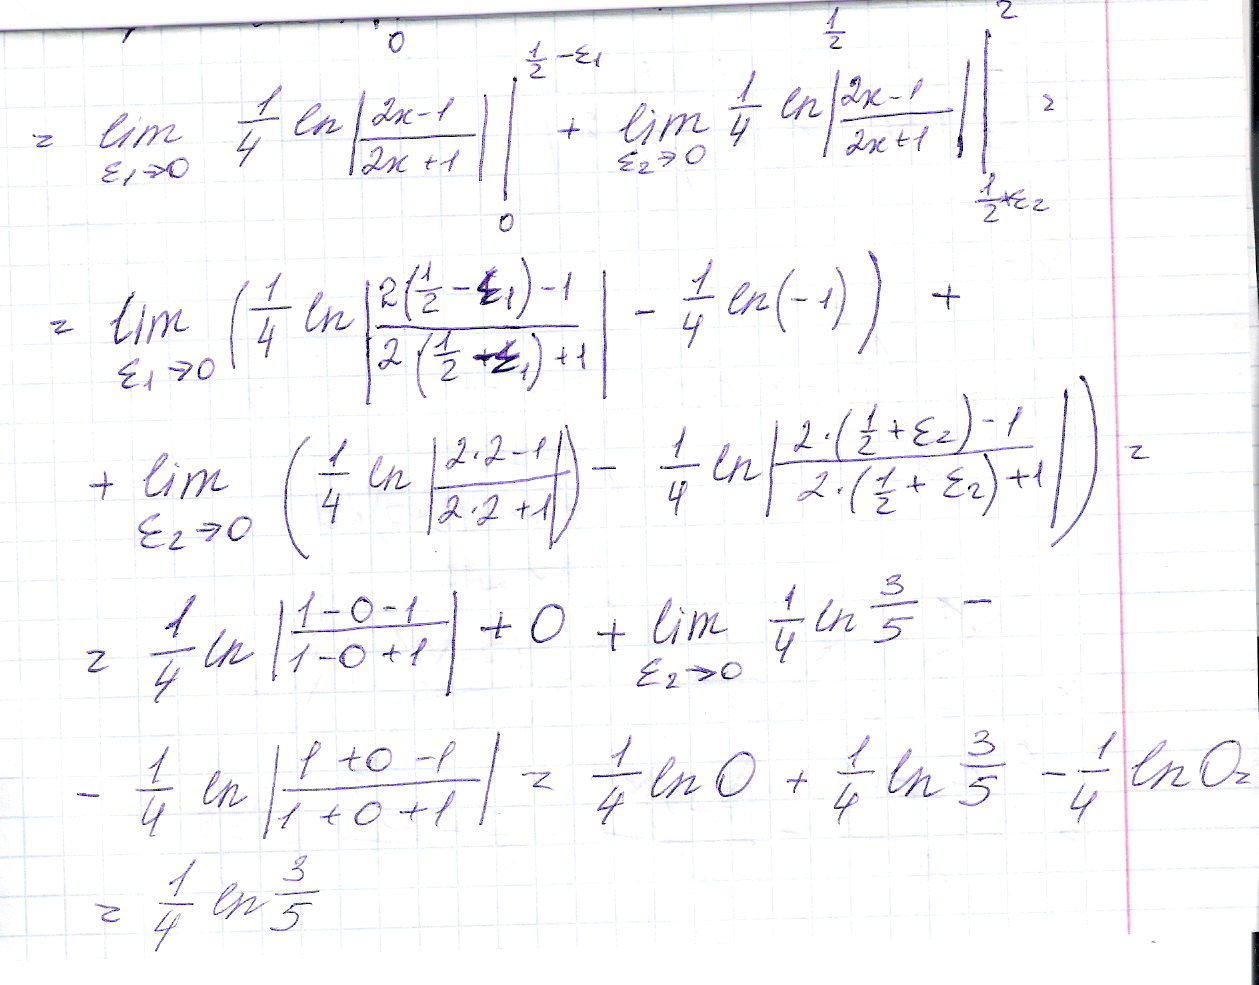 0 1/2 2
= lim ε1→0 1/4 ln|(2x-1)/(2x+1)| |_0^(1/2-ε1) + lim ε2→0 1/4 ln|(2x-1)/(2x+1)| |_(1/2+ε2)^2 =
= lim ε1→0 (1/4 ln|(2(1/2-ε1)-1)/(2(1/2-ε1)+1)| - 1/4 ln(-1)) +
+ lim ε2→0 (1/4 ln|(2·2-1)/(2·2+1)|) - 1/4 ln|(2·(1/2+ε2)-1)/(2·(1/2+ε2)+1)|) =
= 1/4 ln|(1-0-1)/(1-0+1)| + 0 + lim ε2→0 1/4 ln 3/5 -
- 1/4 ln|(1+0-1)/(1+0+1)| = 1/4 ln 0 + 1/4 ln 3/5 - 1/4 ln 0 =
= 1/4 ln 3/5